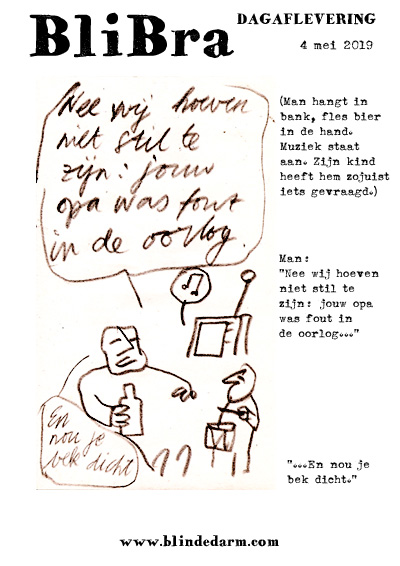 BliBra
DAGAFLEVERING
4 mei 2019
Nee wij hoeven
niet stil te
zijn: jouw
opa was fout
in de oorlog.
En
nou je
bek dicht
(Man hangt in
bank, fles bier
in de hand.
Muziek staat
aan. Zijn kind
heeft hem zojuist
iets gevraagd.)
Man:
"Nee wij hoeven
niet stil te
zijn: jouw opa
was fout in
de oorlog..."
"...En nou je
bek dicht."
www.blindedarm.com